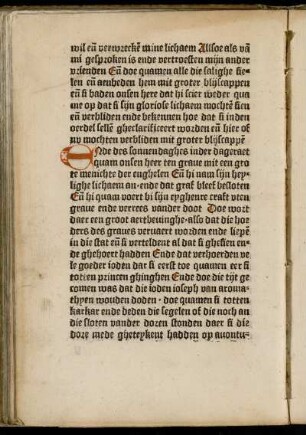 wil eñ verwrecke mine lichaem Allsoe als vã
mi gesproken is ende vertroesten mijn ander
vrienden Eñ doe quamen alle die salighe sie-
len eñ aenbeden hem met groter blijscappen
eñ si baden onsen here dat hi scier weder qua
me op dat si sijn gloriose lichaem mochtẽ sien
eñ verbliden ende bekennen hoe dat si in den
oerdel selle ghecslarificeert worden eñ hier of
ny mochten verbliden mit groter blijscappẽ
Ende des sonnendaghes inder dageraet
quam onsen heer ten graue mit een gro
te menichte der enghelen Eñ hi nam sijn hey-
lighe lichaem an·ende dat graf bleef besloten
Eñ hi quam voert bi sijn eyghenre craft vten
graue ende verrees vander doot Doe wort
daer een groot aertbeuinghe·also dat die hoe
ders des graues veruaert worden ende liepẽ
in die stat eñ si verteldent al dat si ghesien en-
de ghehoert hadden Ende dat verhoerden ve
le goeder ioden dat si eerst toe quamen eer si
totten princen ghinghen Ende doe die tijt ge
comen was dat die ioden ioseph van aroma-
thyen wouden doden · doe quamen si totten
karkar ende deden die segelen of die noch an
die sloten vander doren stonden daer si die
dore mede gheteykent hadden op auontu-